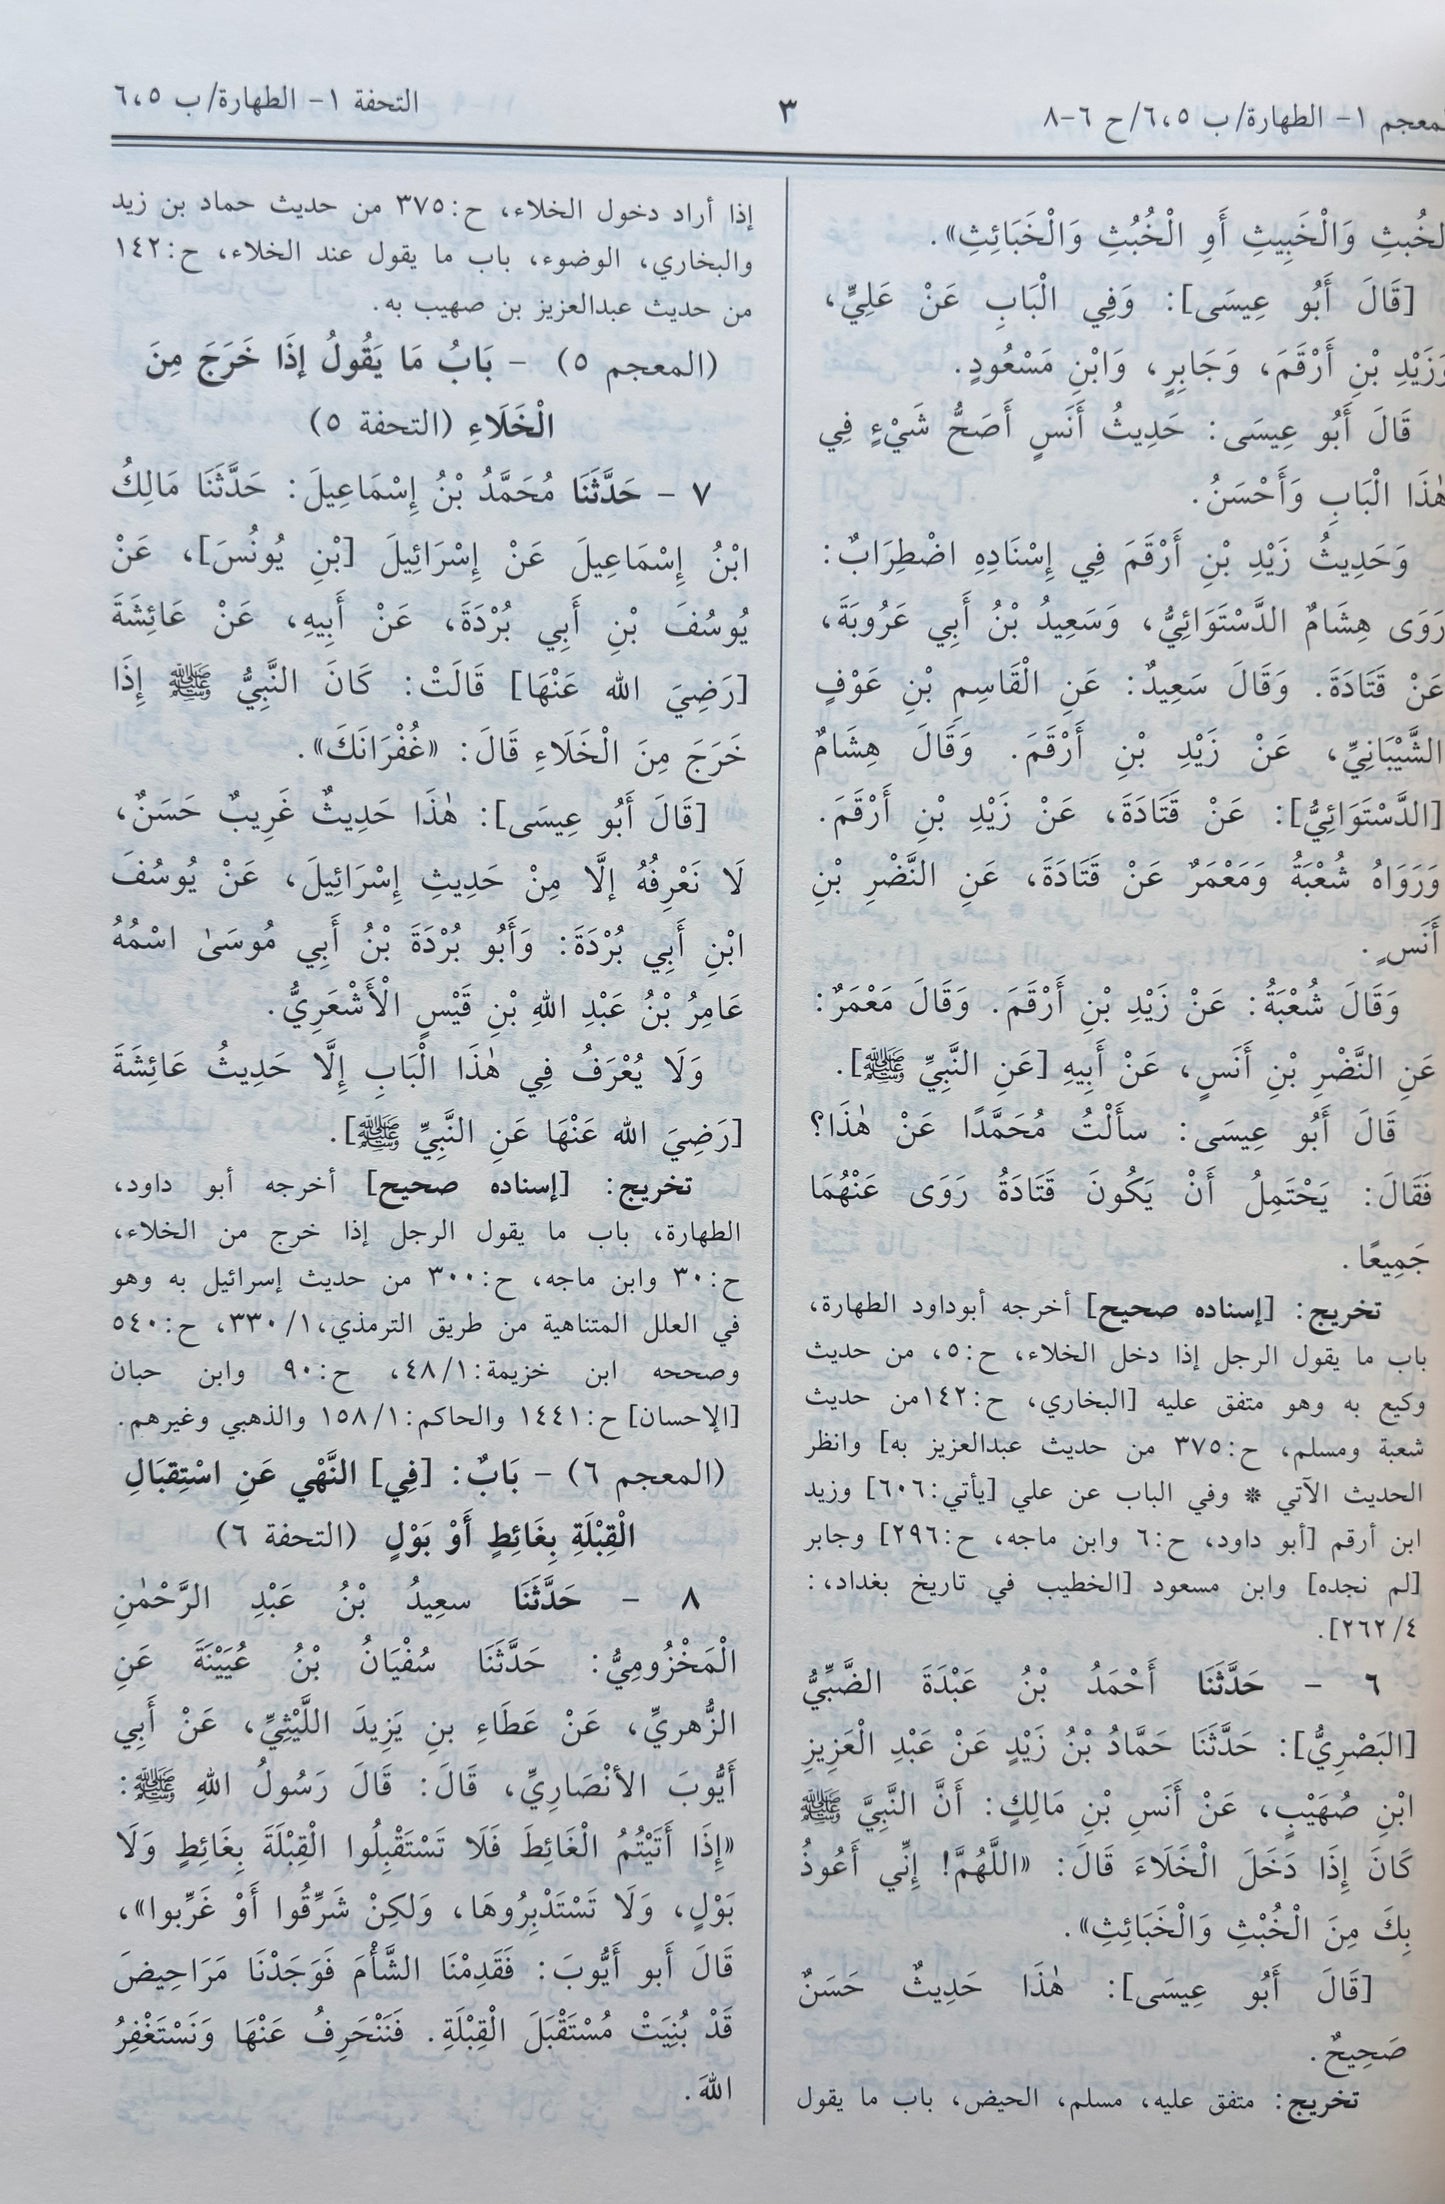 المعجم ١- الطهارة/ ب ٦،٥/ح ٦-٨
٣
التحفة ١- الطهارة/ ب ٦،٥
الْخُبثِ وَالْخَبِيثِ أَوِ الْخُبُثِ وَالْخَبَائِثِ».
[قَالَ أَبُو عِيسَى]: وَفِي الْبَابِ عَنْ عَلِيٍّ،
وَزَيْدِ بْنِ أَرْقَمَ، وَجَابِرٍ، وَابْنِ مَسْعُودٍ.
قَالَ أَبُو عِيسَى: حَدِيثُ أَنَسٍ أَصَحُّ شَيْءٍ فِي
هٰذَا الْبَابِ وَأَحْسَنُ.
وَحَدِيثُ زَيْدِ بْنِ أَرْقَمَ فِي إِسْنَادِهِ اضْطِرَابٌ:
رَوَى هِشَامٌ الدَّسْتَوَائِيُّ، وَسَعِيدُ بْنُ أَبِي عَرُوبَةَ،
عَنْ قَتَادَةَ. وَقَالَ سَعِيدٌ: عَنِ الْقَاسِمِ بْنِ عَوْفٍ
الشَّيْبَانِيِّ، عَنْ زَيْدِ بْنِ أَرْقَمَ. وَقَالَ هِشَامٌ
[الدَّسْتَوَائِيُّ]: عَنْ قَتَادَةَ، عَنْ زَيْدِ بْنِ أَرْقَمَ.
وَرَوَاهُ شُعْبَةُ وَمَعْمَرٌ عَنْ قَتَادَةَ، عَنِ النَّضْرِ بْنِ
أَنَسٍ.
وَقَالَ شُعْبَةُ: عَنْ زَيْدِ بْنِ أَرْقَمَ. وَقَالَ مَعْمَرٌ:
عَنِ النَّضْرِ بْنِ أَنَسٍ، عَنْ أَبِيهِ [عَنِ النَّبِيِّ ﷺ].
قَالَ أَبُو عِيسَى: سأَلْتُ مُحَمَّدًا عَنْ هٰذَا؟
فَقَالَ: يَحْتَمِلُ أَنْ يَكُونَ قَتَادَةُ رَوَى عَنْهُمَا
جَمِيعًا.
تخريج: [إسناده صحيح] أخرجه أبوداود الطهارة،
باب ما يقول الرجل إذا دخل الخلاء، ح:٥، من حديث
وكيع به وهو متفق عليه [البخاري، ح:١٤٢من حديث
شعبة ومسلم، ح:٣٧٥ من حديث عبدالعزيز به] وانظر
الحديث الآتي * وفي الباب عن علي [يأتي:٦٠٦] وزيد
ابن أرقم [أبو داود، ح:٦ وابن ماجه، ح:٢٩٦] وجابر
[لم نجده] وابن مسعود [الخطيب في تاريخ بغداد،:
٤/ ٢٦٢].
٦ - حَدَّثَنَا أَحْمَدُ بْنُ عَبْدَةَ الضَّبِّيُّ
[البَصْرِيُّ]: حَدَّثَنَا حَمَّادُ بْنُ زَيْدٍ عَنْ عَبْدِ الْعَزِيزِ
ابْنِ صُهَيْبٍ، عَنْ أَنَسِ بْنِ مَالِكٍ: أَنَّ النَّبِيَّ ﷺ
كَانَ إِذَا دَخَلَ الْخَلَاءَ قَالَ: «اللَّهُمَّ! إِنِّي أَعُوذُ
بِكَ مِنَ الْخُبْثِ وَالْخَبَائِثِ».
[قَالَ أَبُو عِيسَى]: هٰذَا حَدِيثٌ حَسَنٌ
صَحِيحٌ.
تخريج: متفق عليه، مسلم، الحيض، باب ما يقول
إذا أراد دخول الخلاء، ح:٣٧٥ من حديث حماد بن زيد
والبخاري، الوضوء، باب ما يقول عند الخلاء، ح:١٤٢
من حديث عبدالعزيز بن صهيب به.
(المعجم ٥) - بَابُ مَا يَقُولُ إِذَا خَرَجَ مِنَ
الْخَلَاءِ (التحفة ٥)
٧ - حَدَّثَنَا مُحَمَّدُ بْنُ إِسْمَاعِيلَ: حَدَّثَنَا مَالِكُ
ابْنُ إِسْمَاعِيلَ عَنْ إِسْرَائِيلَ [بْنِ يُونُسَ]، عَنْ
يُوسُفَ بْنِ أَبِي بُرْدَةَ، عَنْ أَبِيهِ، عَنْ عَائِشَةَ
[رَضِيَ الله عَنْهَا] قَالَتْ: كَانَ النَّبِيُّ ﷺ إِذَا
خَرَجَ مِنَ الْخَلَاءِ قَالَ: «غُفْرَانَكَ».
[قَالَ أَبُو عِيسَى]: هٰذَا حَدِيثٌ غَرِيبٌ حَسَنٌ،
لَا نَعْرِفُهُ إلَّا مِنْ حَدِيثِ إِسْرَائِيلَ، عَنْ يُوسُفَ
ابْنِ أَبِي بُرْدَةَ: وَأَبُو بُرْدَةَ بْنُ أَبِي مُوسَىٰ اسْمُهُ
عَامِرُ بْنُ عَبْدِ اللهِ بْنِ قَيْسٍ الْأَشْعَرِيُّ.
وَلَا يُعْرَفُ فِي هٰذَا الْبَابِ إِلَّا حَدِيثُ عَائِشَةَ
[رَضِيَ الله عَنْهَا عَنِ النَّبِيِّ ﷺ].
تخريج: [إسناده صحيح] أخرجه أبو داود،
الطهارة، باب ما يقول الرجل إذا خرج من الخلاء،
ح:٣٠ وابن ماجه، ح:٣٠٠ من حديث إسرائيل به وهو
في العلل المتناهية من طريق الترمذي،١/ ٣٣٠، ح:٥٤٠
وصححه ابن خزيمة:١/ ٤٨، ح:٩٠ وابن حبان
[الإحسان] ح:١٤٤١ والحاكم:١/ ١٥٨ والذهبي وغيرهم.
(المعجم ٦) - بَابٌ: [فِي] النَّهْي عَنِ اسْتِقبَالِ
الْقِبْلَةِ بِغَائِطٍ أَوْ بَوْلٍ (التحفة ٦)
٨ - حَدَّثَنَا سعِيدُ بْنُ عَبْدِ الرَّحْمٰنِ
الْمَخْزُومِيُّ: حَدَّثَنَا سُفْيَانُ بْنُ عُيَيْنَةَ عَنِ
الزُّهريِّ، عَنْ عَطَاءِ بنِ يَزِيدَ اللَّيْثِيِّ، عَنْ أَبِي
أَيُّوبَ الأنْصَارِيِّ، قَالَ: قَالَ رَسُولُ اللهِ ﷺ:
«إِذَا أَتَيْتُمُ الْغَائِطَ فَلَا تَسْتَقْبِلُوا الْقِبْلَةَ بِغَائِطٍ وَلَا
بَوْلٍ، وَلَا تَسْتَدْبِرُوهَا، وَلكِنْ شَرِّقُوا أَوْ غَرِّبوا»،
قَالَ أَبو أَيُّوبَ: فَقَدِمْنَا الشَّأْمَ فَوَجَدْنَا مَرَاحِيضَ
قَدْ بُنِيَتْ مُسْتَقْبَلَ الْقِبْلَةِ. فَنَنْحَرِفُ عَنْهَا وَنَسْتَغْفِرُ
اللهَ.